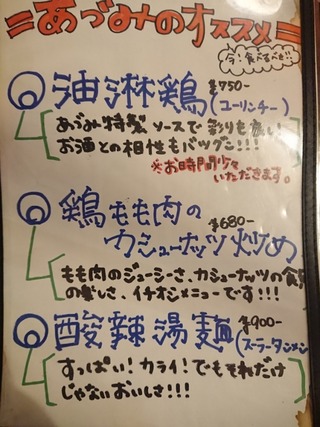 =あづみのオススメ=
今!食べるべき!!
油淋鶏 ¥750-
(ユーリンチー)
あづみ特製 ソースで 彩りも良い!
お酒との相性もバツグン!!!
※お時間少々
いただきます。
鶏もも肉の ¥680-
カシューナッツ炒め
もも肉のジューシーさ、カシューナッツの食感
の楽しさ、イチオシメニューです!!!
酸辣湯麺 ¥900-
(スーラータンメン
すっぱい!カライ!でもそれだけ
じゃないおいしさ!!!